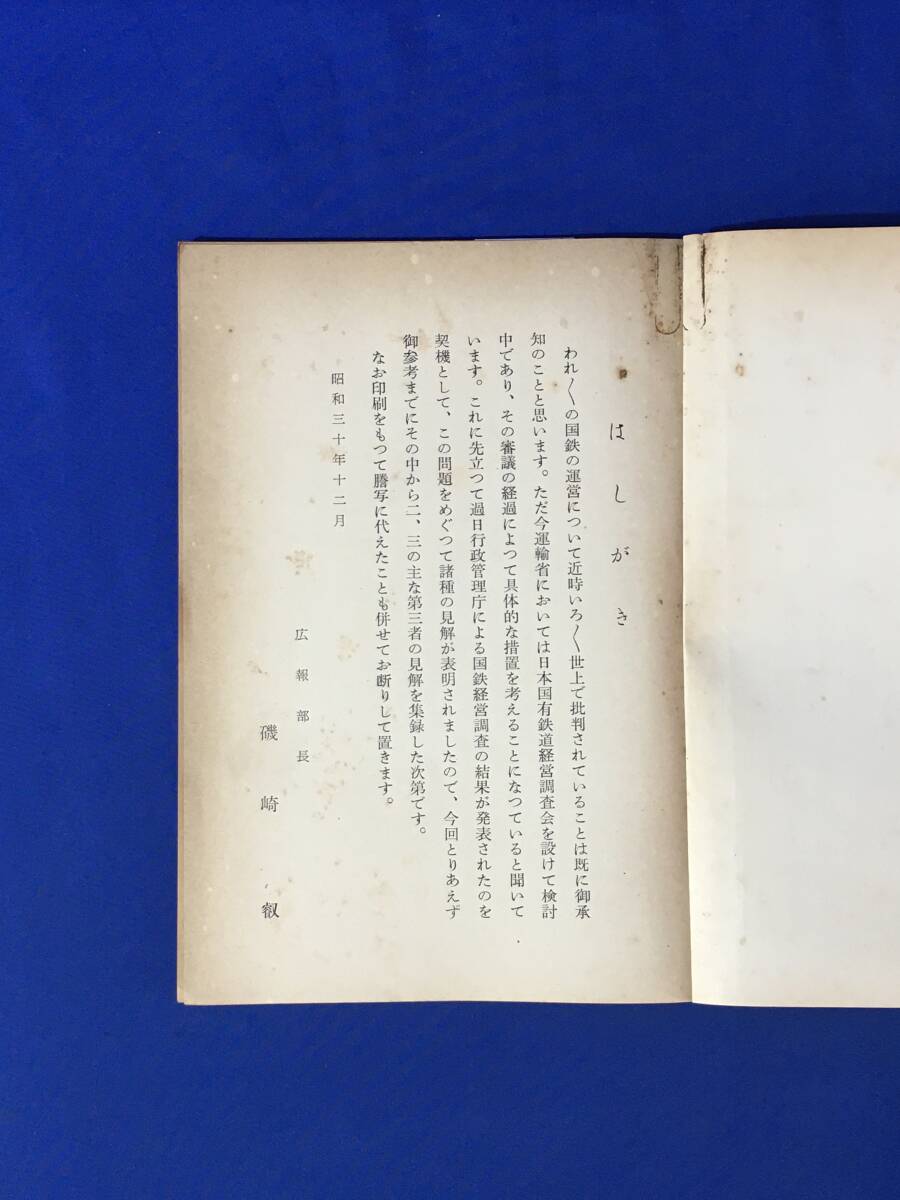 はしがき
われ〱の国鉄の運営について近時いろ〱世上で批判されていることは既に御承
知のことと思います。ただ今運輸省においては日本国有鉄道経営調査会を設けて検討
中であり、その審議の経過によつて具体的な措置を考えることになつていると聞いて
います。これに先立つて過日行政管理庁による国鉄経営調査の結果が発表されたのを
契機として、この問題をめぐつて諸種の見解が表明されましたので、今回とりあえず
御参考までにその中から二、三の主な第三者の見解を集録した次第です。
なお印刷をもつて謄写に代えたことも併せてお断りして置きます。
昭和三十年十二月
広報部長
磯崎叡